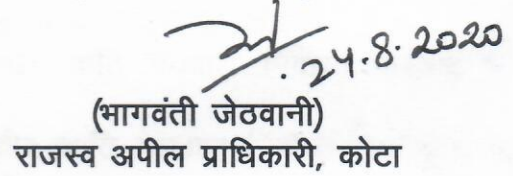 24.8.2020
(भागवंती जेठवानी)
राजस्व अपील प्राधिकारी, कोटा